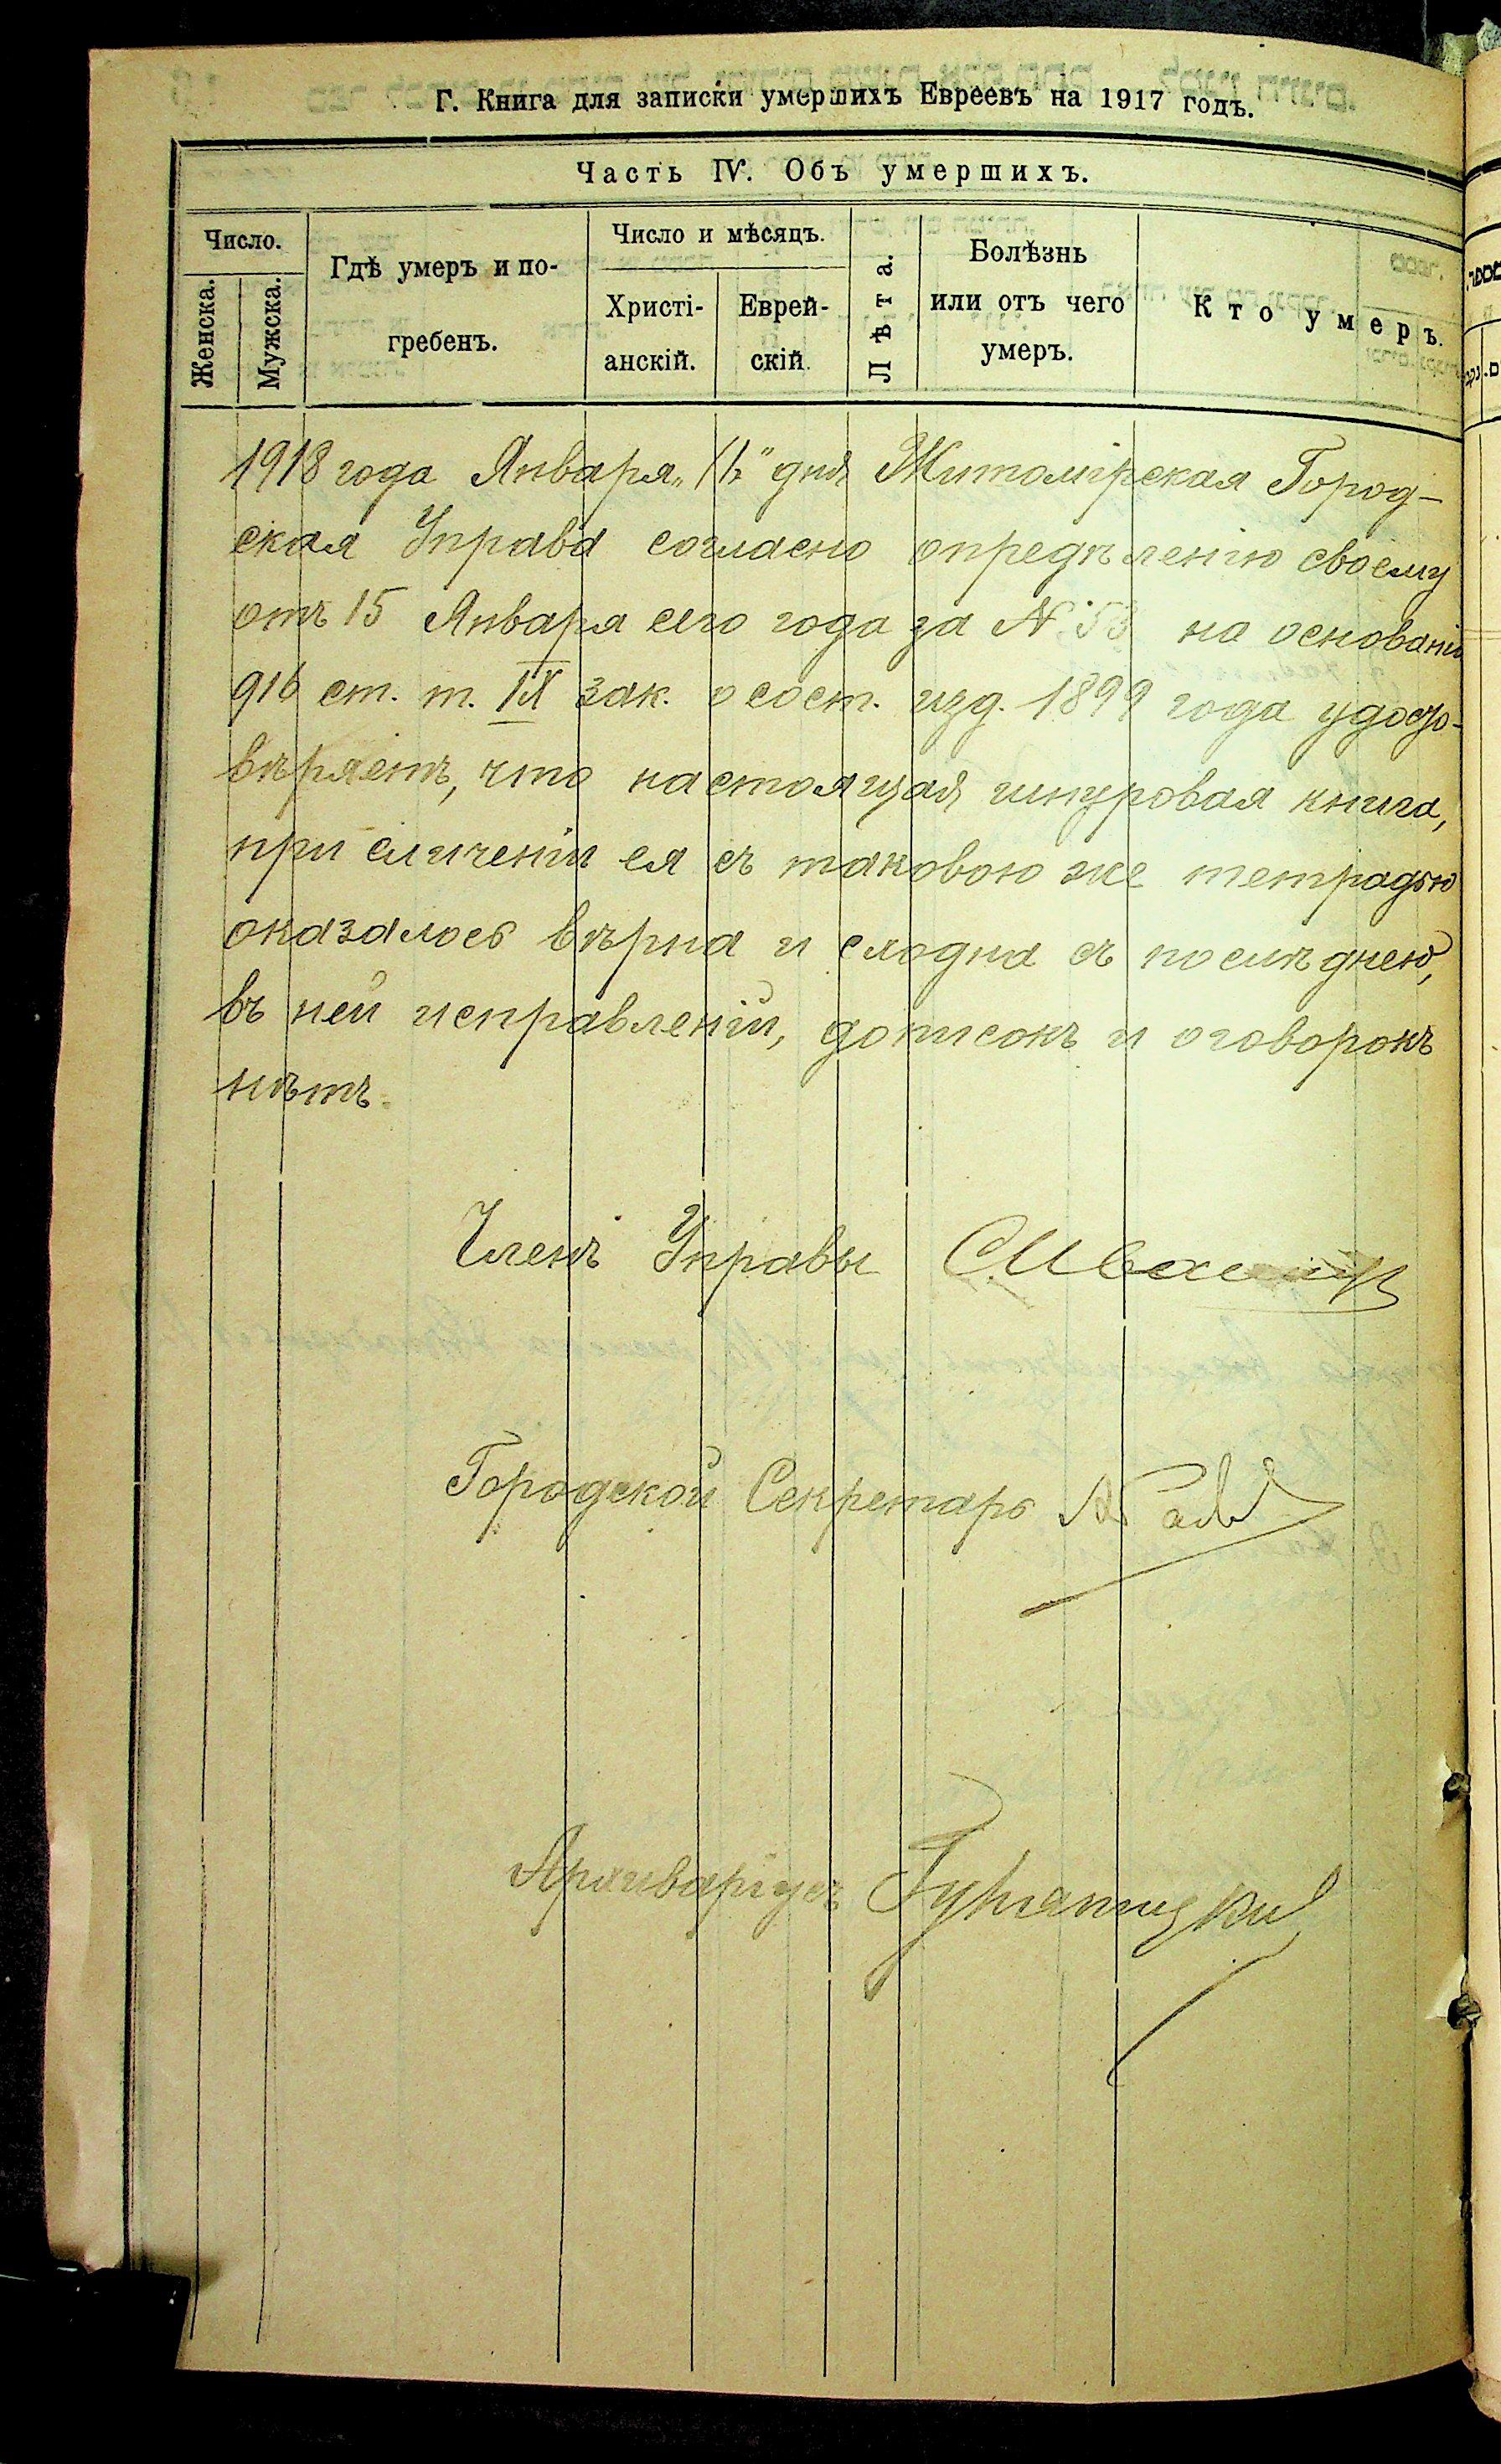 Г. Книга для записки умершихъ Евреевъ на 1917 годъ.
Часть IV. Объ умершихъ.
Число.
Женска.
Мужска.
Гдѣ умеръ и по-
гребенъ.
Число и мѣсяцъ.
Христі-
анскій.
Еврей-
скій.
Лѣта.
Болѣзнь
или отъ чего
умеръ.
Кто умеръ.
1918 года Января дня Житомірская Город-
ская Управа согласно опредѣленію своему
отъ 15 Января сего года за № 53 на основаніи
916 ст. т. IX зак. о сост. изд. 1899 года удосто-
вѣряетъ, что настоящая шнуровая книга,
при сличеніи ея съ таковою же тетрадью
оказалось вѣрна и сходна съ послѣднею,
въ ней исправленій, дописокъ и оговорокъ
нѣтъ.
Членъ Управы
Городской Секретарь
Архиваріусъ